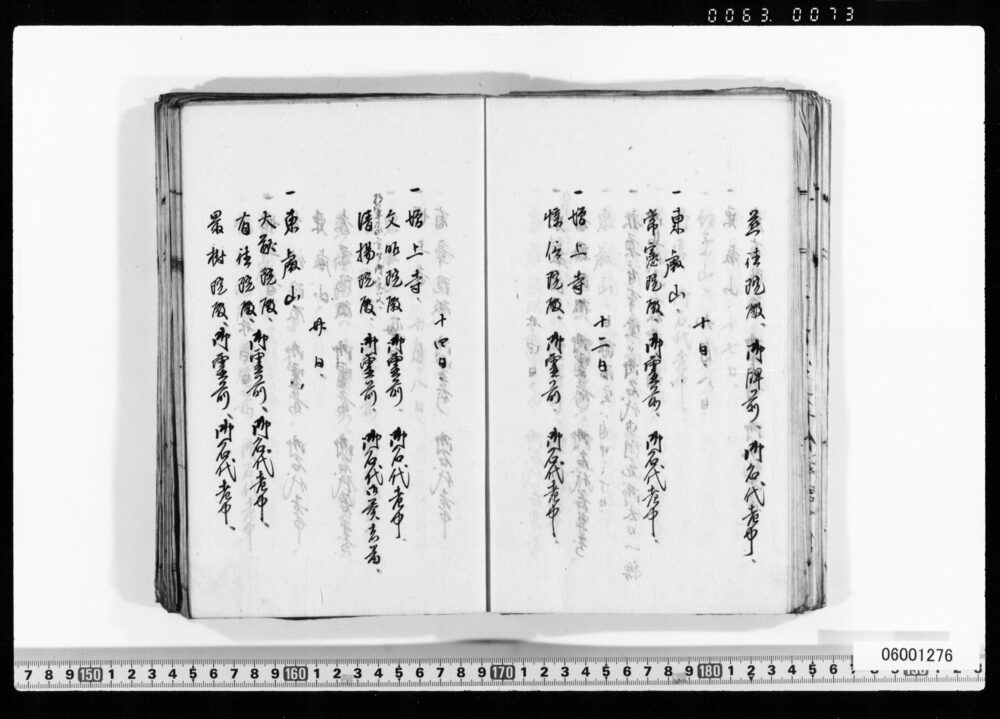 0063. 0073
孝恭院殿、御牌前、御名代老中、
十日、
一東叡山
常憲院殿、御霊前、御名代老中、
十二日
一増上寺
惇信院殿、御霊前 御名代老中
十四日
一増上寺
文昭院殿 御霊前、御名代老中
清揚院殿、御霊前、御名代
廿日、
一東叡山、
大猷院殿、御霊前、御名代老中、
有徳院殿、
最樹院殿、御霊前、御名代老中、
06001276
7 8 9 150 1 2 3 4 5 6 7 8 9 160 1 2 3 4 5 6 7 8 9 170 1 2 3 4 5 6 7 8 9 180 1 2 3 4 5 6